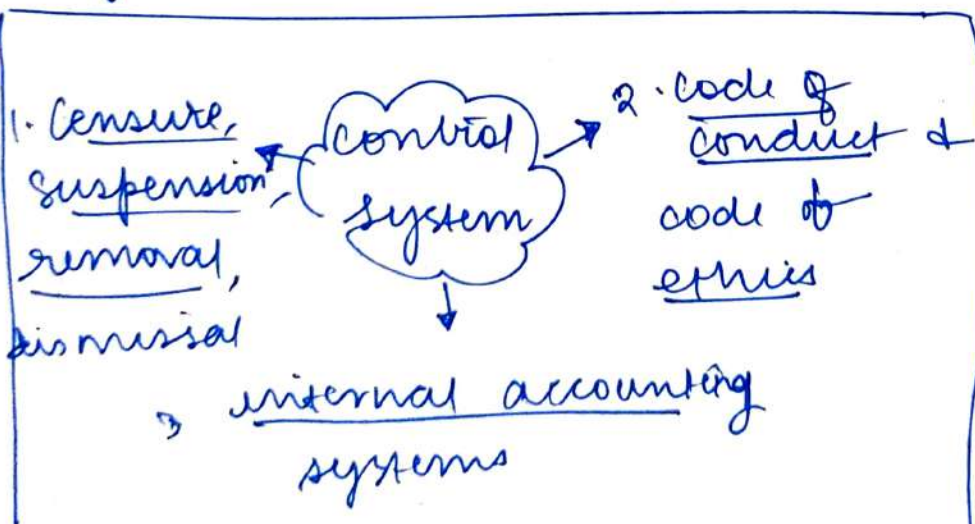 1. Censure,
suspension,
removal,
dismissal
control
system
2. code of
conduct &
code of
ethics
3 internal accounting
systems